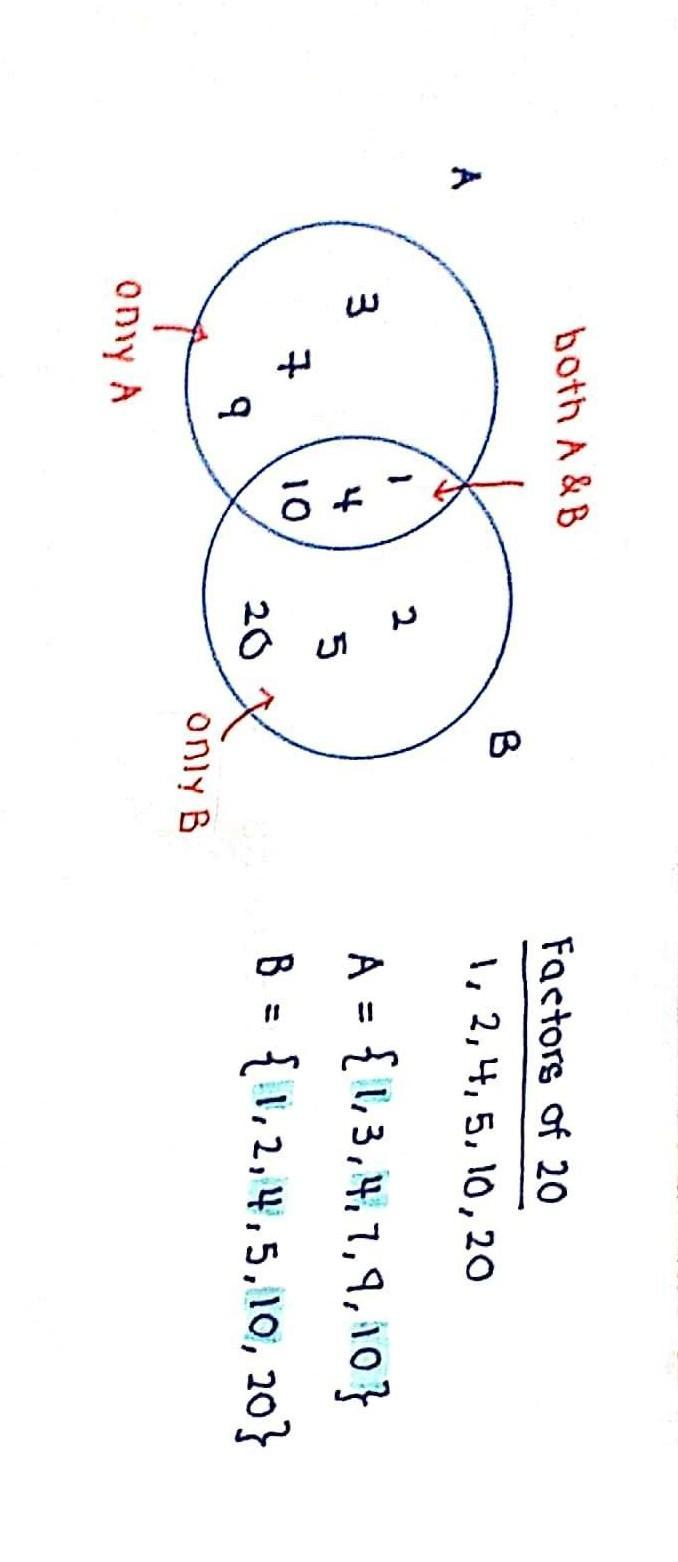 both A & B
A
B
3
7
9
1
4
10
2
5
20
only A
only B
Factors of 20
1, 2, 4, 5, 10, 20
A = {1, 3, 4, 7, 9, 10}
B = {1, 2, 4, 5, 10, 20}